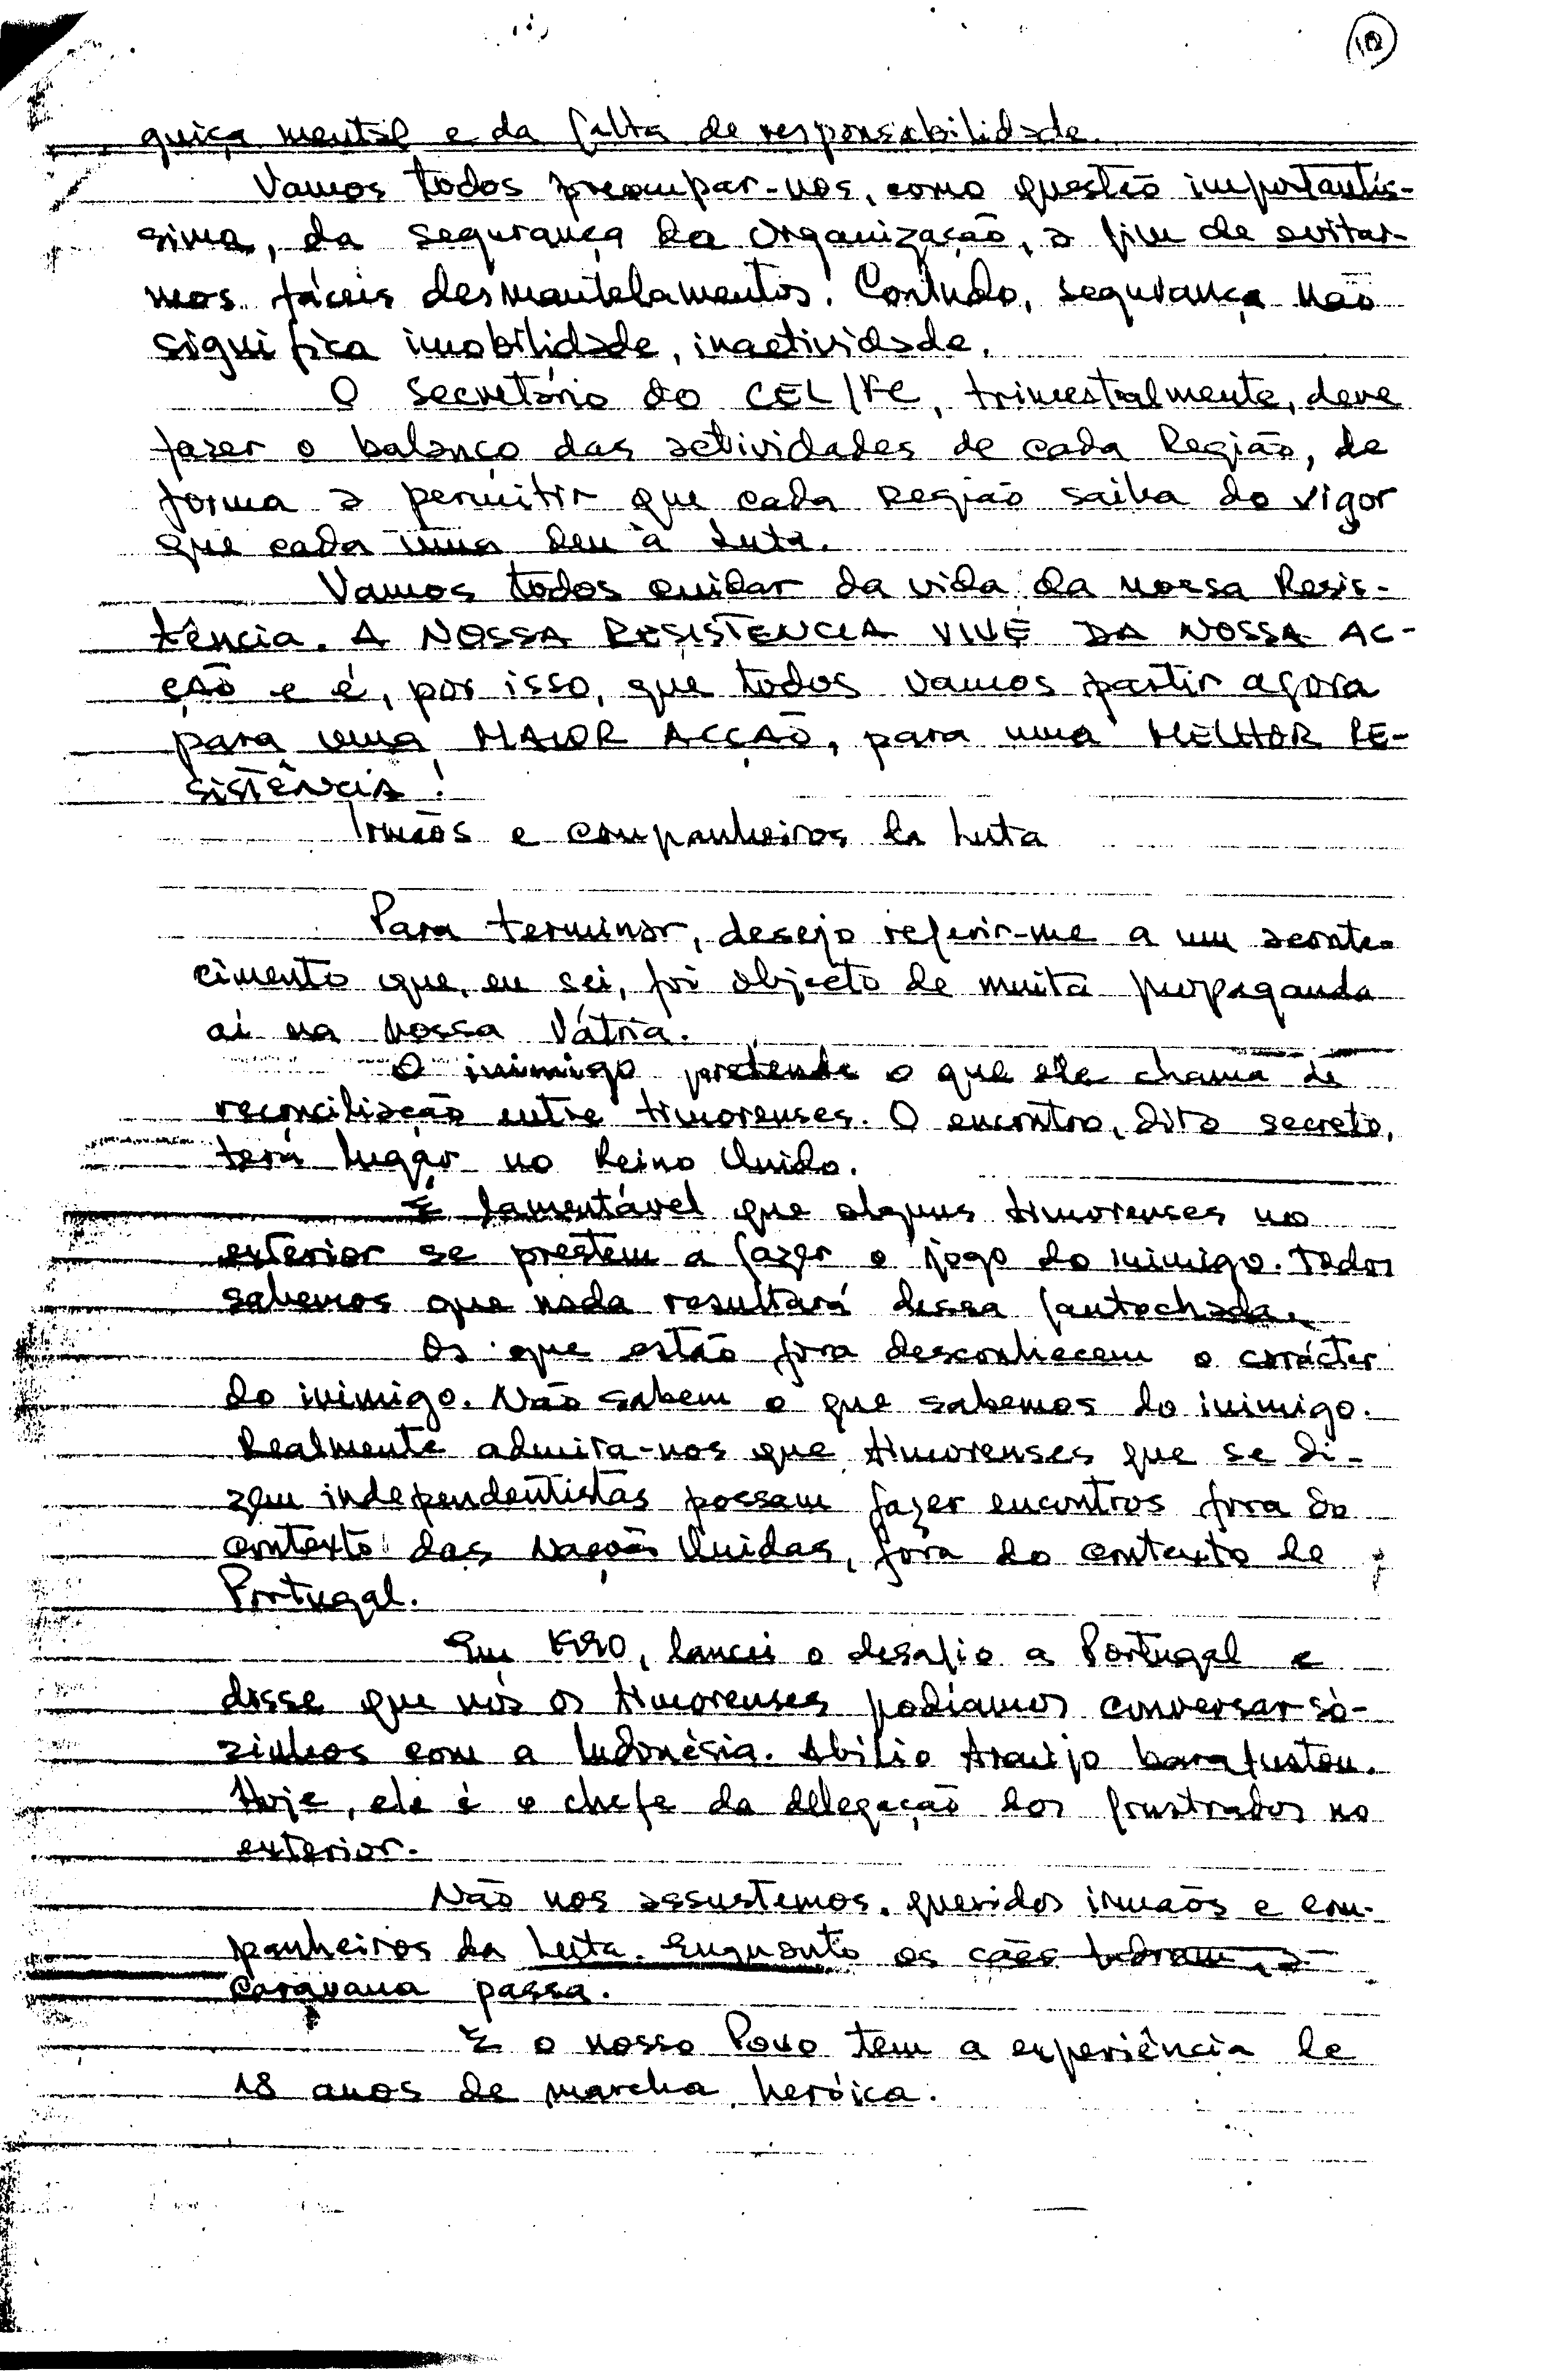 10
guiça mental e da falta de responsabilidade.
Vamos todos preocupar-nos, como questão importantís-
sima, da segurança da Organização, a fim de evitar-
mos fáceis desmantelamentos. Contudo, segurança não
significa imobilidade, inactividade.
O Secretário do CEL/FC, trimestralmente, deve
fazer o balanço das actividades de cada Região, de
forma a permitir que cada Região saiba do vigor
que cada uma deu à Luta.
Vamos todos cuidar da vida da nossa Resis-
tência. A NOSSA RESISTENCIA VIVE DA NOSSA AC-
ÇÃO e é, por isso, que todos vamos partir agora
para uma MAIOR ACÇÃO, para uma MELHOR RE-
SISTÊNCIA!
Irmãos e companheiros da Luta
Para terminar, desejo referir-me a um aconte-
cimento que, eu sei, foi objecto de muita propaganda
aí na nossa Pátria.
O inimigo pretende o que ele chama de
reconciliação entre timorenses. O encontro, dito secreto,
terá lugar no Reino Unido.
É lamentável que alguns timorenses no
exterior se prestem a fazer o jogo do inimigo. Todos
sabemos que nada resultará dessa fantochada.
Os que estão fora desconhecem o carácter
do inimigo. Não sabem o que sabemos do inimigo.
Realmente admira-nos que timorenses que se di-
zem independentistas possam fazer encontros fora do
contexto das Nações Unidas, fora do contexto de
Portugal.
Em 1990, lancei o desafio a Portugal e
disse que nós os timorenses podíamos conversar sò-
zinhos com a Indonésia. Abílio Araújo barafustou.
Hoje, ele é o chefe da delegação dos frustrados no
exterior.
Não nos assustemos, queridos irmãos e com-
panheiros da Luta. Enquanto os cães ladram, a
caravana passa.
E o nosso Povo tem a experiência de
18 anos de marcha heróica.